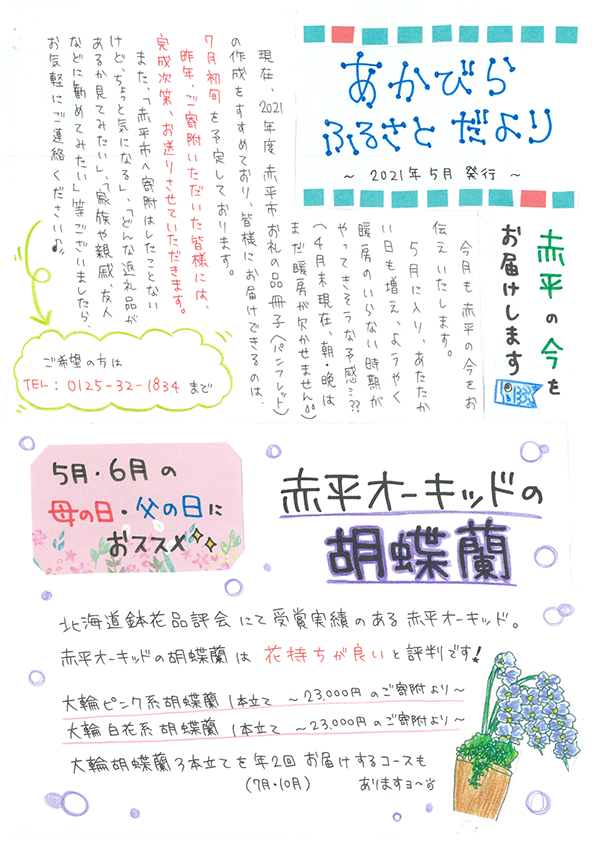 あかびら
ふるさと だより
~ 2021年5月 発行 ~
赤平の今を
お届けします
今月も赤平の今をお
伝えいたします。
5月に入り、あたたか
い日も増え、ようやく
暖房のいらない時期が
やってきそうな予感…??
(4月末現在、朝・晩は
まだ暖房が欠かせません)
現在、2021年度 赤平市お礼の品冊子(パンフレット)
の作成をすすめており、皆様にお届けできるのは、
7月初旬を予定しております。
昨年、ご寄附いただいた皆様には、
完成次第、お送りさせていただきます。
また、「赤平市へ寄附はしたことない
けど、ちょっと気になる」、「どんな返礼品が
あるか見てみたい」、「家族や親戚、友人
などに勧めてみたい」等ございましたら、
お気軽にご連絡ください♪
ご希望の方は
TEL: 0125-32-1834 まで
5月・6月の
母の日・父の日に
おススメ
赤平オーキッドの
胡蝶蘭
北海道鉢花品評会にて受賞実績のある赤平オーキッド。
赤平オーキッドの胡蝶蘭は 花持ちが良いと評判です!
大輪ピンク系胡蝶蘭 1本立て ~23,000円のご寄附より~
大輪白花系胡蝶蘭 1本立て ~23,000円のご寄附より~
大輪胡蝶蘭3本立てを年2回お届けするコースも
(7月・10月) ありますョ~